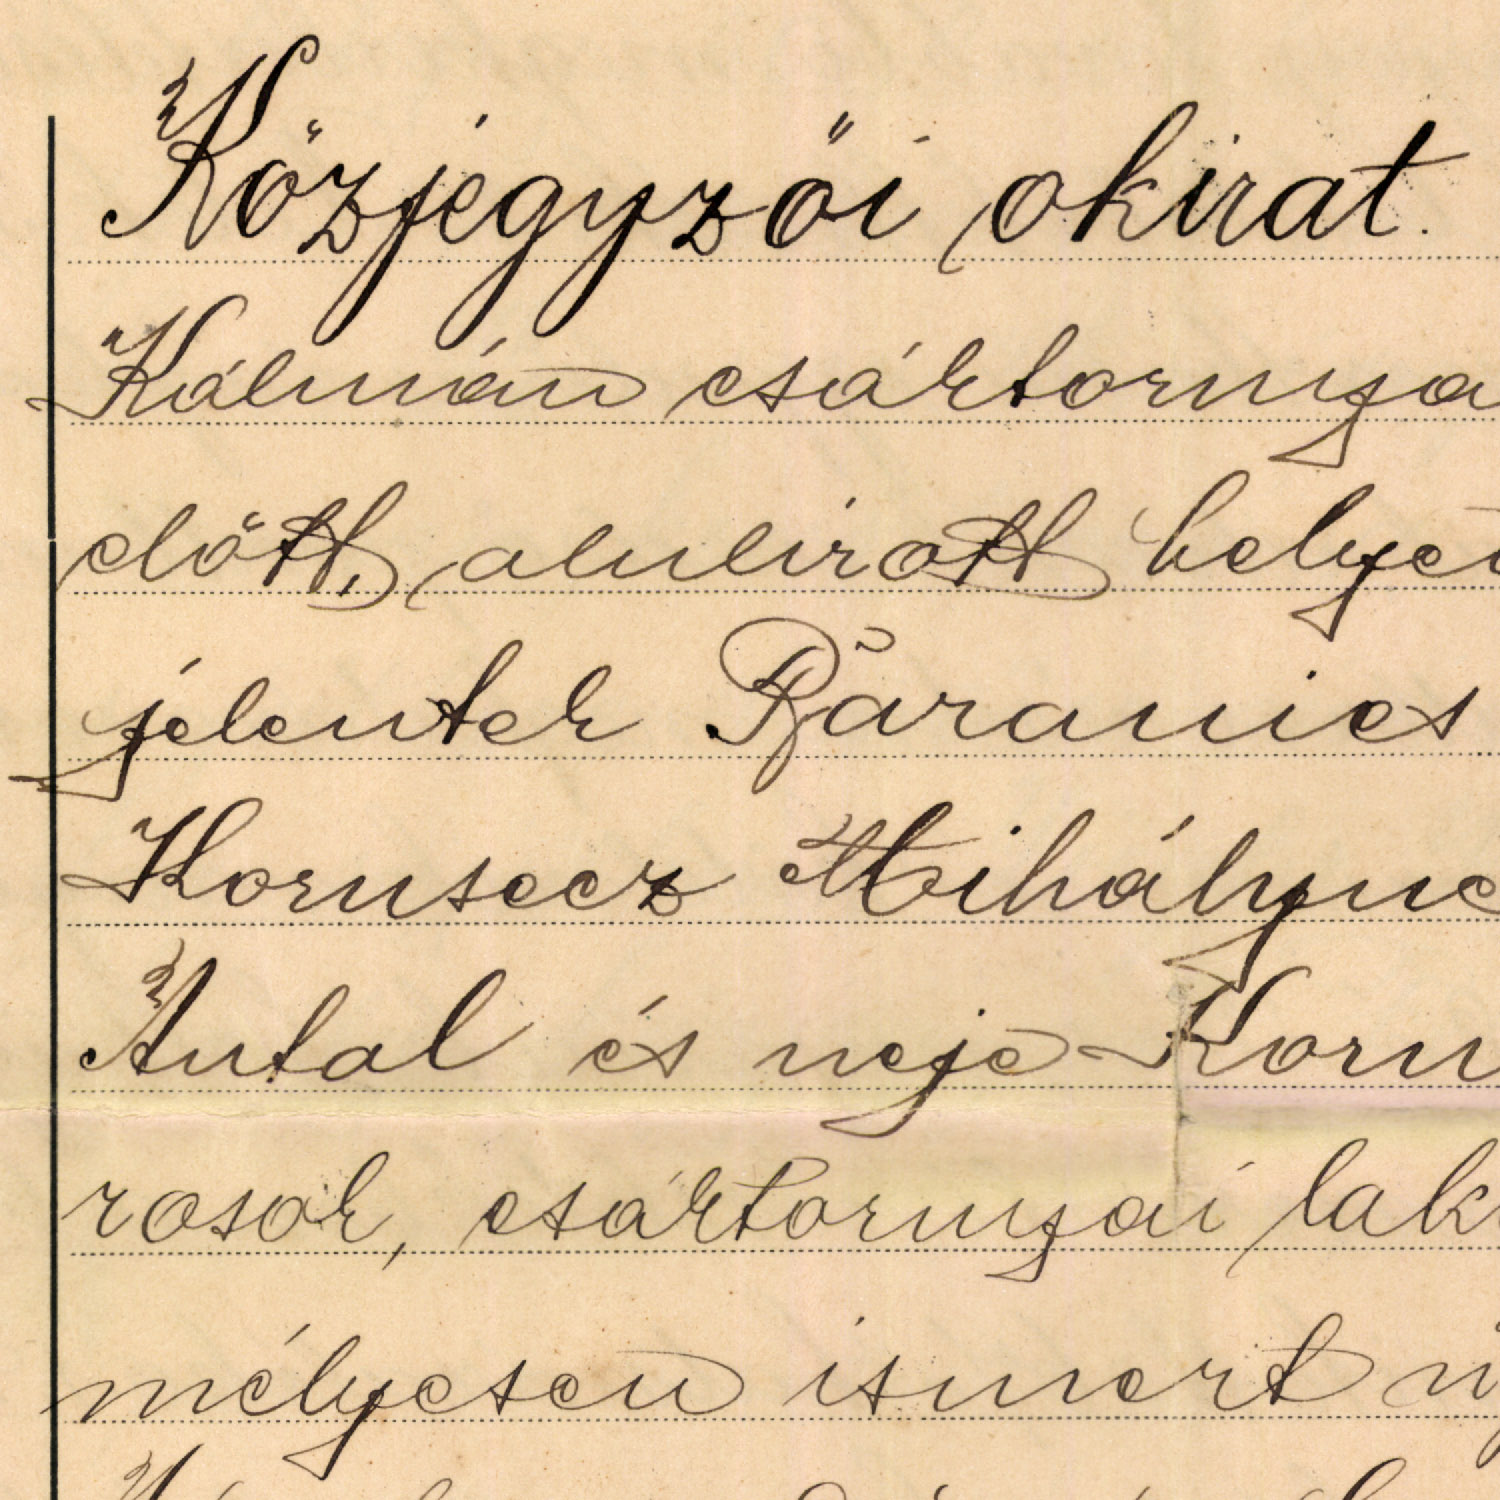 Közjegyzői okirat.
Kálmán csáktornya
előtt, alulirott helyen
jelentek Báranics
Hornsecz Mihályne
Antal és neje Horn
rosok, csáktornyai lak
mélyesen ismert